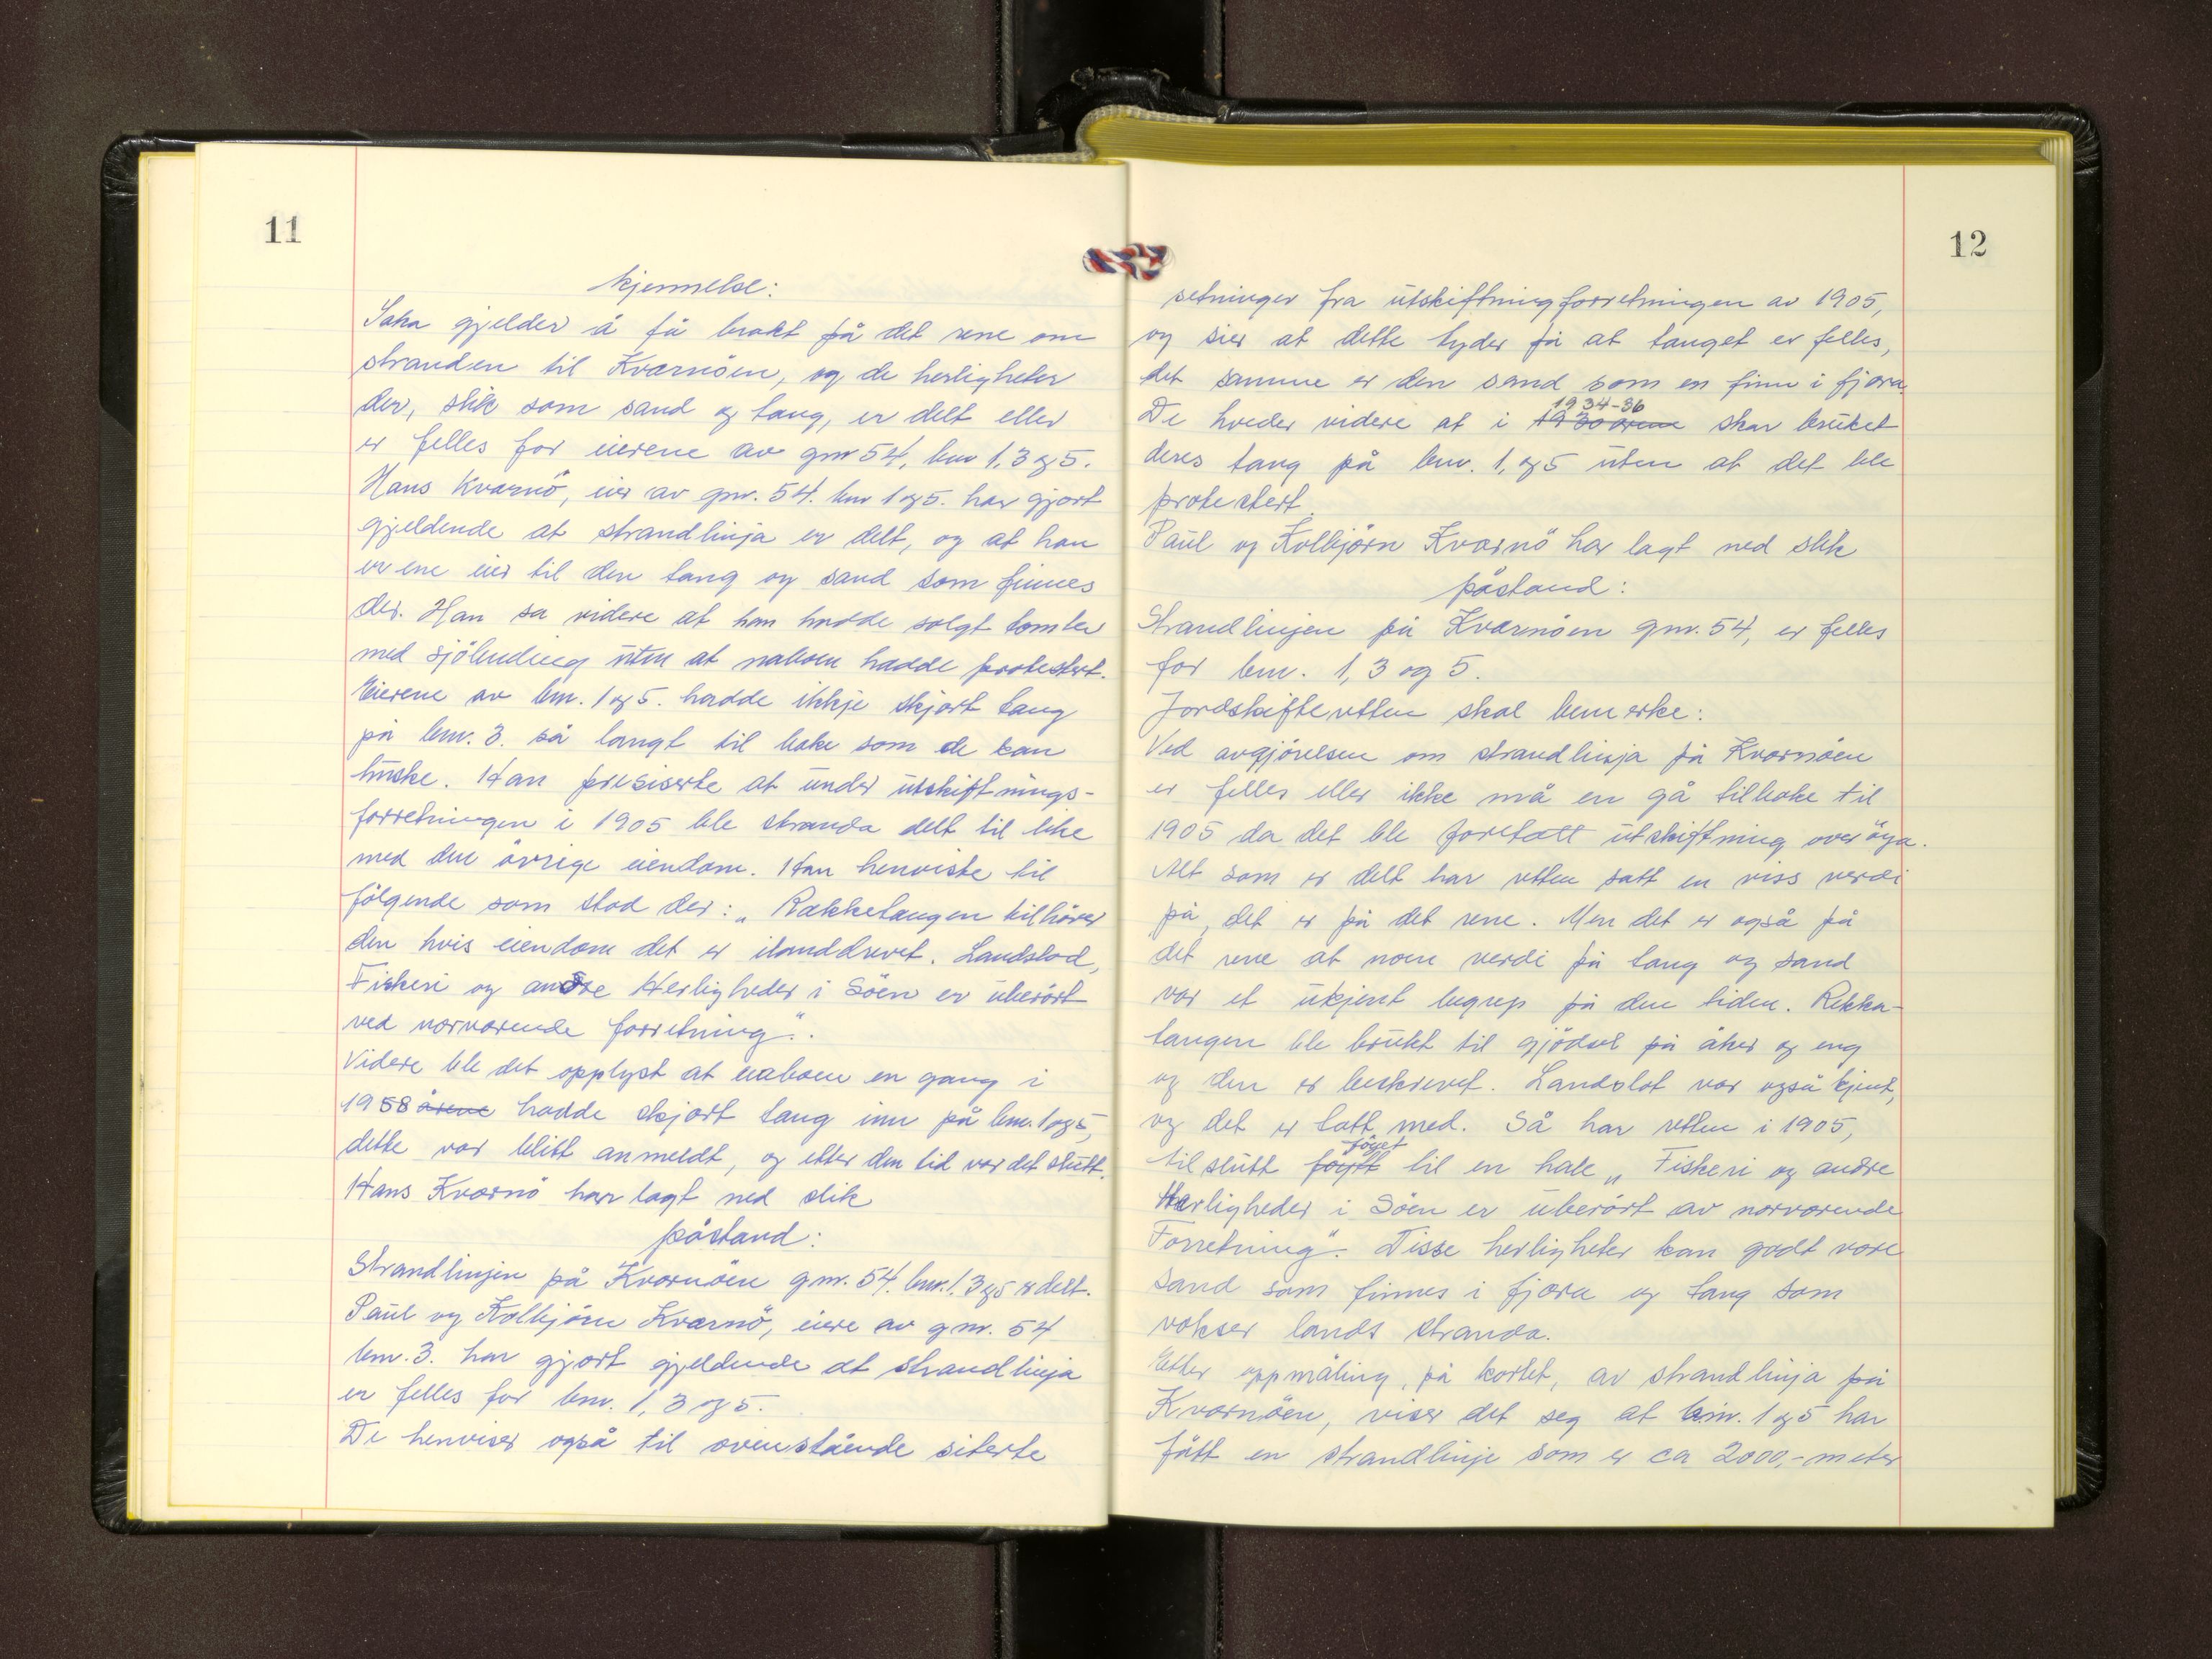 11
kjennelse:
Saka gjelder å få brakt på det rene om
stranden til Kvarnöen, og de herligheter
der, slik som sand og tang, er delt eller
er felles for eierene av gnr 54, bnr 1, 3 og 5.
Hans Kvarnö, eier av gnr. 54. bnr 1 og 5. har gjort
gjeldende at strandlinja er delt, og at han
er ene eier til den tang og sand som finnes
der. Han sa videre at han hadde solgt tomter
med sjölinding uten at naboen hadde protestert.
Eierene av bnr. 1 og 5. hadde ikkje skjört tang
på bnr. 3. så langt til bake som de kan
huske. Han presiserte at under utskiftnings-
forretningen i 1905 ble stranda delt til like
med den övrige eiendom. Han henviste til
fölgende som stod der: „Rækketangen tilhörer
den hvis eiendom det er ilanddrevet. Landslod,
Fiskeri og andre Herligheder i Söen er uberört
ved nærværende forretning".
Videre ble det opplyst at naboen en gang i
1958 årene hadde skjört tang inn på bnr. 1 og 5,
dette var blitt anmeldt, og etter den tid var det slutt.
Hans Kvarnö har lagt ned slik
påstand:
Strandlinjen på Kvarnöen gnr. 54. bnr. 1. 3 og 5 er delt.
Paul og Kolbjörn Kvarnö, eiere av gnr. 54
bnr. 3. har gjort gjeldende at strandlinja
er felles for bnr. 1, 3 og 5.
De henviser også til ovenstående siterte
12
setninger fra utskiftningforretningen av 1905,
og sier at dette tyder på at tanget er felles,
det samme er den sand som en finn i fjæra.
1934-36
De hveder videre at i 1930 årene skar bruket
deres tang på bnr. 1, og 5 uten at det ble
protestert.
Paul og Kolbjörn Kvarnö har lagt ned slik
påstand:
Strandlinjen på Kvarnöen gnr. 54, er felles
for bnr. 1, 3 og 5.
Jordskifteretten skal bemerke:
Ved avgjörelsen om strandlinja på Kvarnöen
er felles eller ikke må en gå tilbake til
1905 da det ble foretatt utskiftning over öya.
Alt som er delt har retten satt en viss verdi
på, det er på det rene. Men det er også på
det rene at noen verdi på tang og sand
var et ukjent begrep på den tiden. Rekka-
tangen ble brukt til gjödsel på åker og eng
og den er beskrevet. Landslot var også kjent,
og det er tatt med. Så har retten i 1905,
föyet
til slutt föytt til en hale „Fiskeri og andre
Herligheder i Söen er uberört av nærværende
Forretning". Disse herligheter kan godt være
sand som finnes i fjæra og tang som
vokser lands stranda.
Etter oppmåling, på kortet, av strandlinja på
Kvarnöen, viser det seg at bnr. 1 og 5 har
fått en strandlinje som er ca 2000,- meter